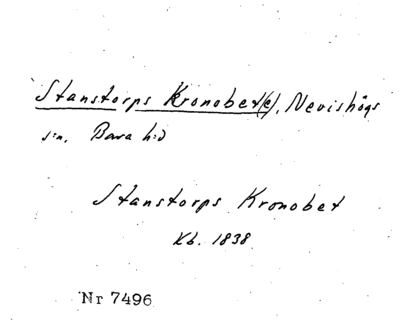 Stanstorps Kronobet(e), Nevishögs
s:n, Bara h:d
Stanstorps Kronobet
Kb. 1838
Nr 7496